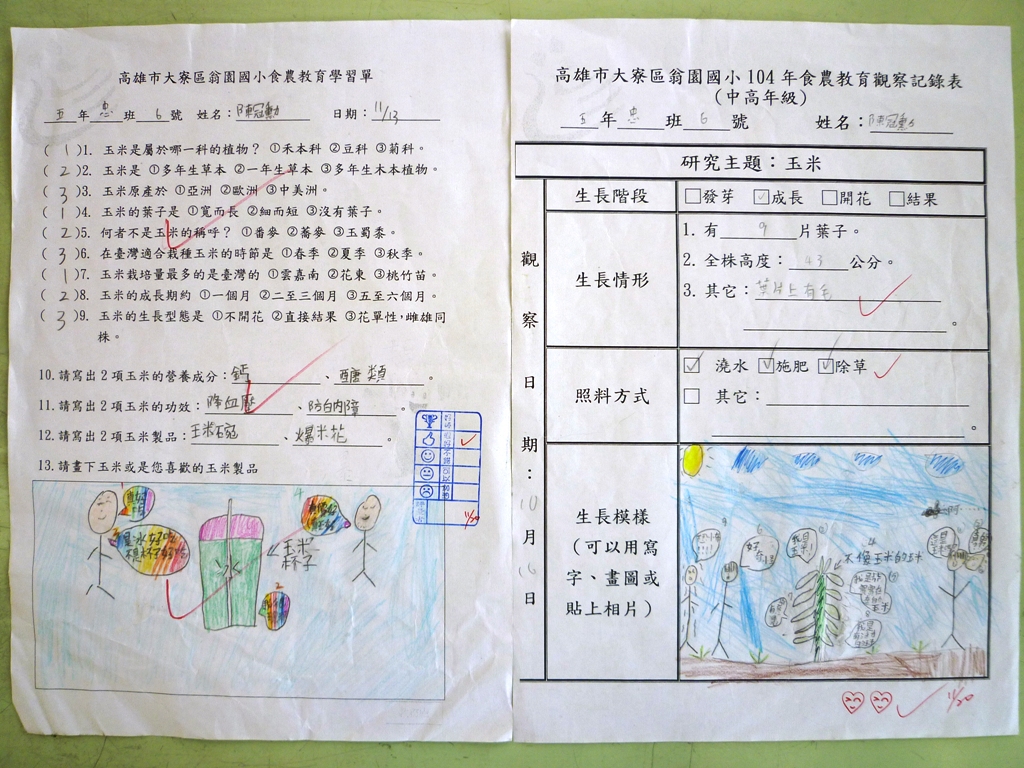 高雄市大寮區翁園國小食農教育學習單
五年忠班6號 姓名：陳冠勳 日期：11/13
(1)1. 玉米是屬於哪一科的植物？①禾本科 ②豆科 ③菊科。
(2)2. 玉米是 ①多年生草本 ②一年生草本 ③多年生木本植物。
(3)3. 玉米原產於 ①亞洲 ②歐洲 ③中美洲。
(1)4. 玉米的葉子是 ①寬而長 ②細而短 ③沒有葉子。
(2)5. 何者不是玉米的稱呼？①番麥 ②蕎麥 ③玉蜀黍。
(3)6. 在臺灣適合栽種玉米的時節是 ①春季 ②夏季 ③秋季。
(1)7. 玉米栽培量最多的是臺灣的 ①雲嘉南 ②花東 ③桃竹苗。
(2)8. 玉米的成長期約 ①一個月 ②二至三個月 ③五至六個月。
(3)9. 玉米的生長型態是 ①不開花 ②直接結果 ③花單性，雌雄同
株。
10.請寫出2項玉米的營養成分：鈣、醣類。
11.請寫出2項玉米的功效：降血壓、防白內障。
12.請寫出2項玉米製品：玉米碗、爆米花。
13.請畫下玉米或是您喜歡的玉米製品
玉米
杯子
11/20
高雄市大寮區翁園國小104年食農教育觀察記錄表
（中高年級）
五年忠班6號 姓名：陳冠勳
研究主題：玉米
觀察日期：10月16日
生長階段
□發芽 ☑成長 □開花 □結果
生長情形
1. 有9片葉子。
2. 全株高度：43公分。
3. 其它：葉片上有毛
。
照料方式
☑ 澆水 ☑施肥 ☑除草
□ 其它：
。
生長模樣
（可以用寫
字、畫圖或
貼上相片）
不像玉米的玉米
我是
玉米!
11/20